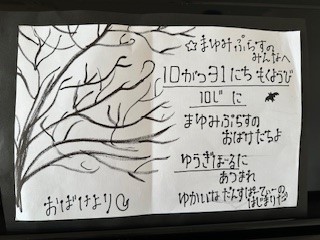 ☆まゆみぷらすの
みんなへ
10がつ31にち もくようび
10じ に
まゆみぷらすの
おばけたちよ
ゆうぎほーるに
あつまれ
ゆかいなだんすぱーてぃーの
はじまりだ
おばけより